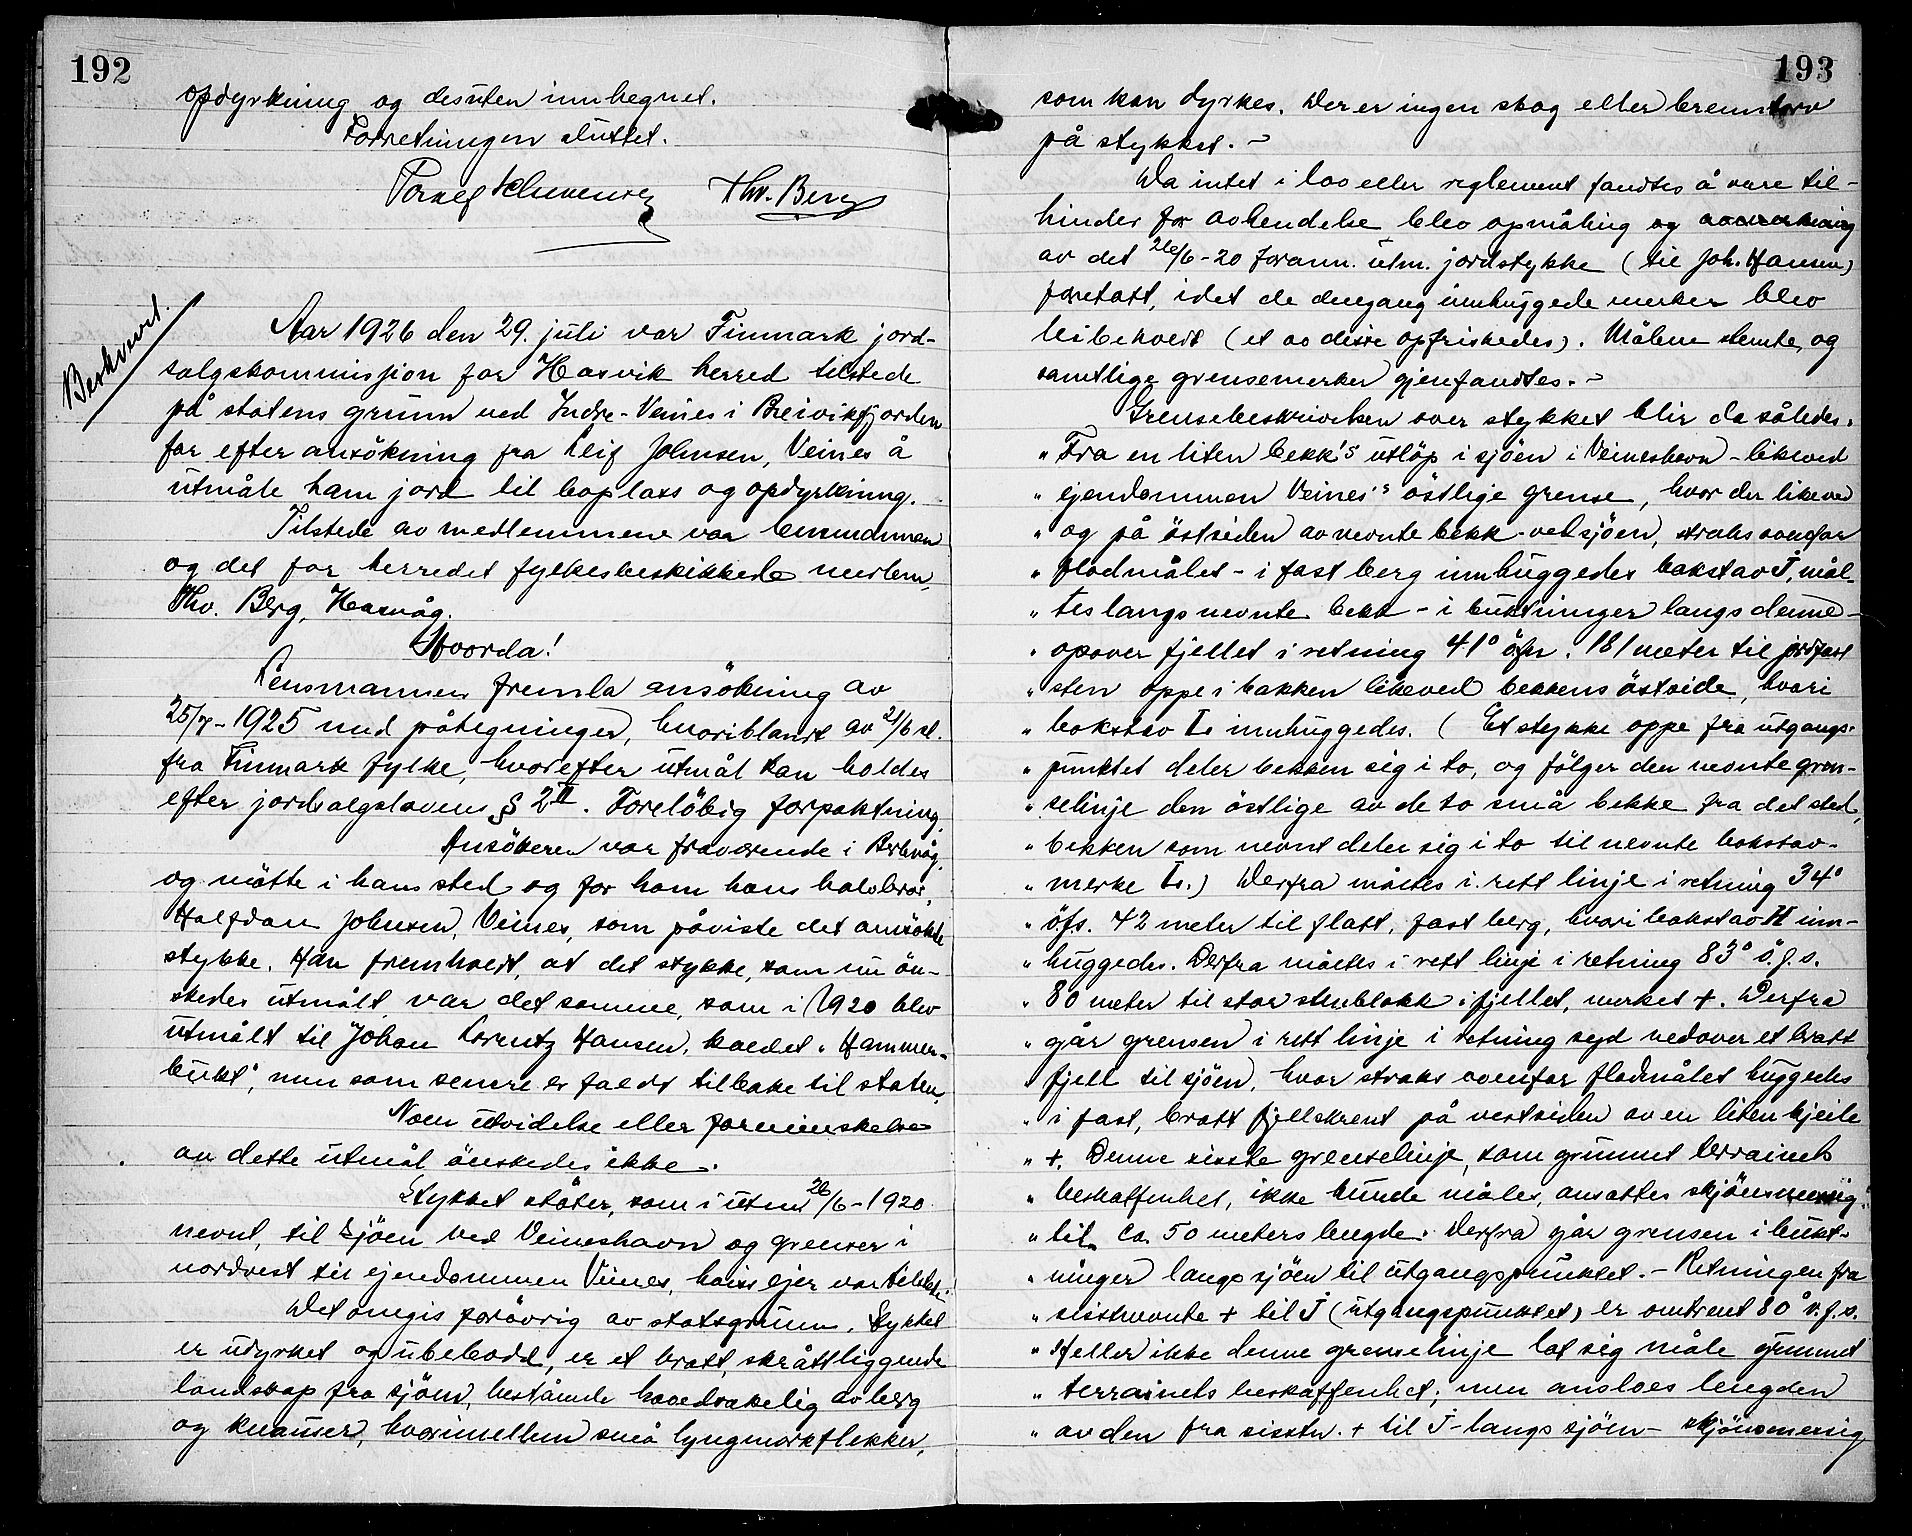 192
opdyrkning og desuten innhegnet.
Forretningen sluttet.
Thv. Berg
Beskrevet.
Aar 1926 den 29. juli var Finmark jord-
salgskommisjon for Hasvik herred tilstede
på statens grunn ved Indre-Veines i Breivikfjorden
for efter ansökning fra Leif Johnsen, Veines å
utmåle ham jord til boplass og opdyrkning.
Tilstede av medlemmene var lensmannen
og det for herredet fylkesbeskikkede medlem,
Thv. Berg, Hasvåg.
Hvorda!
Lensmannen fremla ansökning av
25/7-1925 med påtegninger, hvoriblandt av 21/6 sl.
fra Finmark fylke, hvorefter utmål kan holdes
efter jordsalgslovens § 2 II. Forelöbig forpaktning.
Ansökeren var fraværende i Berlevåg,
og mötte i hans sted og for ham hans halvbror,
Halfdan Johnsen, Veines, som påviste det ansökte
stykke. Han fremholdt, at det stykke, som nu ön-
skedes utmålt, var det samme, som i 1920 blev
utmålt til Johan Lorentz Hansen, kaldet "Hammer-
bukt", men som senere er faldt tilbake til staten.
Noen utvidelse eller forminskelse
av dette utmål önskedes ikke.
Stykket stöter, som i utm. 26/6-1920
nevnt, til sjöen ved Veineshavn og grenser i
nordvest til ejendommen Veines, hvis ejer var tilstede.
Det omgis forövrig av statsgrunn. Stykket
er udyrket og ubebodd, er et bratt, skråttliggende
landskap fra sjöen, bestående hovedsakelig av berg
og knauser, hvorimellem små lyngmarkflekker,
193
som kan dyrkes. Der er ingen skog eller brenntorv
på stykket. -
Da intet i lov eller reglement fandtes å være til-
hinder for avhendelse blev opmåling og avmerkning
av det 26/6-20 forann. utm. jordstykke (til Joh. Hansen)
foretatt, idet de dengang innhuggede merker blev
bibeholdt (et av disse opfriskedes). Målene stemte, og
samtlige grensemerker gjenfandtes. -
Grensebeskrivelsen over stykket blir da således:
" Fra en liten bekk's utlöp i sjöen i Veineshavn - likeved
" ejendommen Veines's östlige grense, hvor der likeved
" og på östsiden av nevnte bekk - ved sjöen, straks ovenfor
" flodmålet - i fast berg innhuggedes bokstav J, mål-
" tes langs nevnte bekk - i buktninger langs denne -
" opover fjellet i retning 41° öfn. 181 meter til jordfast
" sten oppe i bakken likeved bekkens östside, hvori
" bokstav L innhuggedes. (Et stykke oppe fra utgangs-
" punktet deler bekken sig i to, og fölger den nevnte gren-
" selinje den östlige av de to små bekke fra det sted,
" bekken som nevnt deler sig i to til nevnte bokstav-
" merke L.) Derfra måltes i rett linje i retning 34°
" öfs. 42 meter til flatt, fast berg, hvori bokstav H inn-
" huggedes. Derfra måltes i rett linje i retning 83° ö.f.s.
" 80 meter til stor stenblokk i fjellet, merket +. Derfra
" går grensen i rett linje i retning syd nedover et bratt
" fjell til sjöen, hvor straks ovenfor flodmålet huggedes
" i fast, bratt fjellskrent på vestsiden av en liten kjeile
" +. Denne sisste grenselinje, som grunnet terrainets
" beskaffenhet, ikke kunde måles, ansattes skjönsmessig
" til ca. 50 meters lengde. Derfra går grensen i bukt-
" ninger langs sjöen til utgangspunktet. - Retningen fra
" sisstnevnte + til J (utgangspunktet) er omtrent 80° v.f.s.
" Heller ikke denne grenselinje lot sig måle grunnet
" terrainets beskaffenhet, men ansloes lengden
" av den fra sisstn. + til J - langs sjöen - skjönsmessig